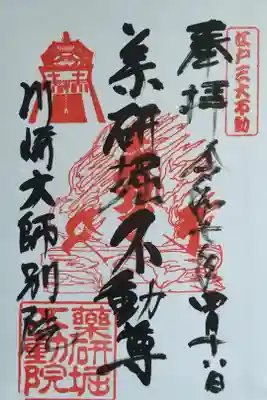 江戸三大不動
奉拝 令和七年四月十六日
薬研堀不動尊
川崎大師別院
薬研堀
不動院